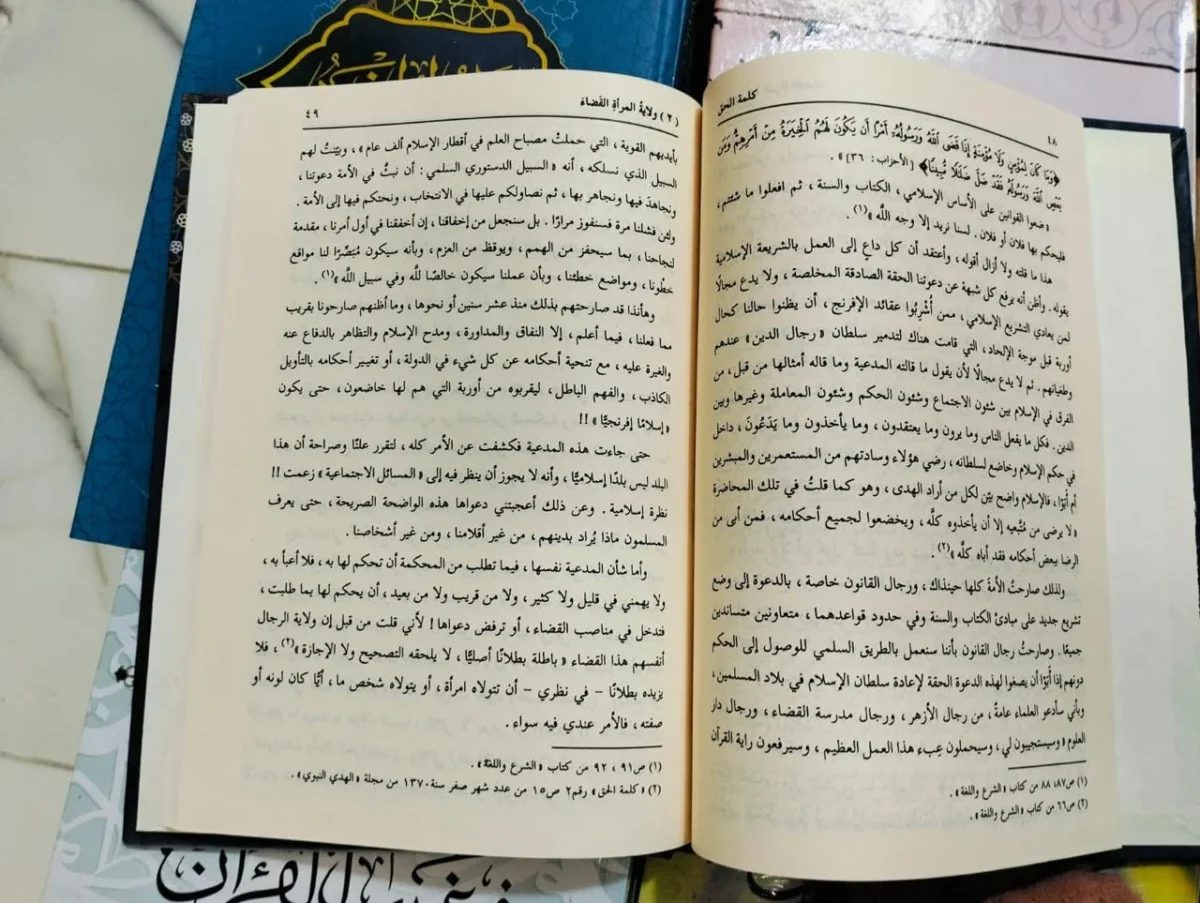 ٤٨
كلمة الحق
﴿وَمَا كَانَ لِمُؤْمِنٍ وَلَا مُؤْمِنَةٍ إِذَا قَضَى اللَّهُ وَرَسُولُهُ أَمْرًا أَن يَكُونَ لَهُمُ الْخِيَرَةُ مِنْ أَمْرِهِمْ وَمَن
يَعْصِ اللَّهَ وَرَسُولَهُ فَقَدْ ضَلَّ ضَلَالًا مُّبِينًا﴾ [الأحزاب: ٣٦].
«ضعوا القوانين على الأساس الإسلامي، الكتاب والسنة، ثم افعلوا ما شئتم،
فليحكم بها فلان أو فلان. لسنا نريد إلا وجه اللَّه»(١).
هذا ما قلته ولا أزال أقوله، وأعتقد أن كل داعٍ إلى العمل بالشريعة الإسلامية
يقوله. وأظن أنه يرفع كل شبهة عن دعوتنا الحقة الصادقة المخلصة، ولا يدع مجالًا
لمن يعادي التشريع الإسلامي، ممن أُشْرِبُوا عقائد الإفرنج، أن يظنوا حالنا كحال
أوربة قبل موجة الإلحاد، التي قامت هناك لتدمير سلطان «رجال الدين» عندهم
وطغيانهم. ثم لا يدع مجالًا لأن يقول ما قالته المدعية وما قاله أمثالها من قبل، من
الفرق في الإسلام بين شئون الاجتماع وشئون الحكم وشئون المعاملة وغيرها وبين
الدين. فكل ما يفعل الناس وما يرون وما يعتقدون، وما يأخذون وما يَدَعُونَ، داخل
في حكم الإسلام وخاضع لسلطانه، رضي هؤلاء وسادتهم من المستعمرين والمبشرين
أم أَبَوْا، فالإسلام واضح بيّن لكل من أراد الهدى، وهو كما قلتُ في تلك المحاضرة
«لا يرضى من مُتَّبعيه إلا أن يأخذوه كلَّه، ويخضعوا لجميع أحكامه، فمن أبى من
الرضا ببعض أحكامه فقد أباه كلَّه»(٢).
ولذلك صارحتُ الأمةَ كلها حينذاك، ورجال القانون خاصة، بالدعوة إلى وضع
تشريع جديد على مبادئ الكتاب والسنة وفي حدود قواعدهما، متعاونين متساندين
جميعًا. وصارحتُ رجال القانون بأننا سنعمل بالطريق السلمي للوصول إلى الحكم
دونهم إذا أَبَوْا أن يصغوا لهذه الدعوة الحقة لإعادة سلطان الإسلام في بلاد المسلمين،
وبأني سأدعو العلماء عامةً، من رجال الأزهر، ورجال مدرسة القضاء، ورجال دار
العلوم «وسيستجيبون لي، وسيحملون عبء هذا العمل العظيم، وسيرفعون راية القرآن
(١) ص٨٧، ٨٨ من كتاب «الشرع واللغة».
(٢) ص٦٦ من كتاب «الشرع واللغة».
(٢) ولايةُ المرأةِ القَضاءَ
٤٩
بأيديهم القوية، التي حملتْ مصباح العلم في أقطار الإسلام ألف عام»، وبيّنتُ لهم
السبيل الذي نسلكه، أنه «السبيل الدستوري السلمي: أن نبثَّ في الأمة دعوتنا،
ونجاهدَ فيها ونجاهر بها، ثم نصاولكم عليها في الانتخاب، ونحتكم فيها إلى الأمة.
ولئن فشلنا مرة فسنفوز مرارًا. بل سنجعل من إخفاقنا، إن أخفقنا في أول أمرنا، مقدمة
لنجاحنا، بما سيحفز من الهمم، ويوقظ من العزم، وبأنه سيكون مُبَصِّرًا لنا مواقع
خطْونا، ومواضع خطئنا، وبأن عملنا سيكون خالصًا للَّه وفي سبيل اللَّه»(١).
وهأنذا قد صارحتهم بذلك منذ عشر سنين أو نحوها، وما أظنهم صارحونا بقريب
مما فعلنا، فيما أعلم، إلا النفاق والمداورة، ومدح الإسلام والتظاهر بالدفاع عنه
والغيرة عليه، مع تنحية أحكامه عن كل شيء في الدولة، أو تغيير أحكامه بالتأويل
الكاذب، والفهم الباطل، ليقربوه من أوربة التي هم لها خاضعون، حتى يكون
«إسلامًا إفرنجيًّا»!!
حتى جاءت هذه المدعية فكشفت عن الأمر كله، لتقرر علنًا وصراحة أن هذا
البلد ليس بلدًا إسلاميًّا، وأنه لا يجوز أن ينظر فيه إلى «المسائل الاجتماعية» زعمت!!
نظرة إسلامية. وعن ذلك أعجبتني دعواها هذه الواضحة الصريحة، حتى يعرف
المسلمون ماذا يُراد بدينهم، من غير أقلامنا، ومن غير أشخاصنا.
وأما شأن المدعية نفسها، فيما تطلب من المحكمة أن تحكم لها به، فلا أعبأ به،
ولا يهمني في قليل ولا كثير، ولا من قريب ولا من بعيد، أن يحكم لها بما طلبت،
فتدخل في مناصب القضاء، أو ترفض دعواها! لأني قلت من قبل إن ولاية الرجال
أنفسهم هذا القضاء «باطلة بطلانًا أصليًّا، لا يلحقه التصحيح ولا الإجازة»(٢)، فلا
يزيده بطلانًا – في نظري – أن تتولاه امرأة، أو يتولاه شخص ما، أيًّا كان لونه أو
صفته، فالأمر عندي فيه سواء.
(١) ص٩١، ٩٢ من كتاب «الشرع واللغة».
(٢) «كلمة الحق» رقم٢ ص١٥ من عدد شهر صفر سنة١٣٧٠ من مجلة «الهدي النبوي».